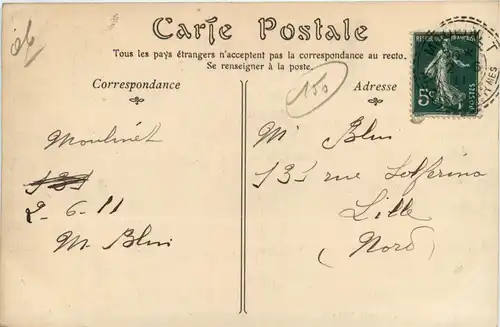 Carte Postale
Tous les pays étrangers n'acceptent pas la correspondance au recto.
Se renseigner à la poste.
Correspondance
Adresse
150
Moulinet
131
2-6-11
M. Blin
M. Blin
131 rue Solférino
Lille
(Nord)
5c
POSTES